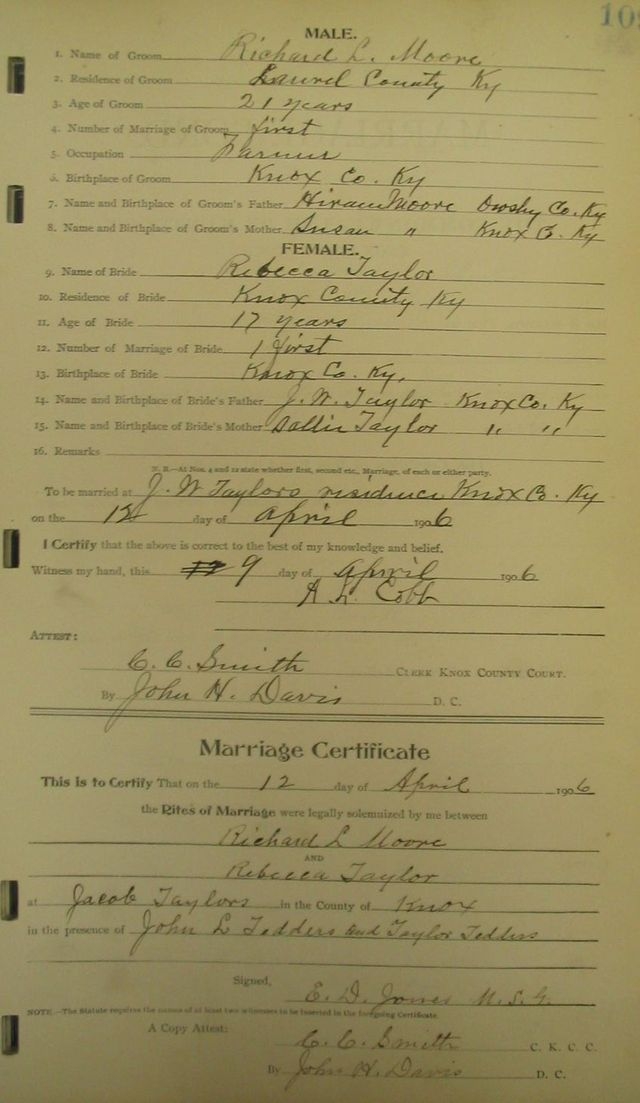 109
MALE.
1. Name of Groom Richard L. Moore
2. Residence of Groom Laurel County Ky
3. Age of Groom 21 years
4. Number of Marriage of Groom first
5. Occupation Farmer
6. Birthplace of Groom Knox Co. Ky
7. Name and Birthplace of Groom's Father Hiram Moore Owsly Co. Ky
8. Name and Birthplace of Groom's Mother Susan " Knox Co. Ky
FEMALE.
9. Name of Bride Rebecca Taylor
10. Residence of Bride Knox County Ky
11. Age of Bride 17 years
12. Number of Marriage of Bride 1 first
13. Birthplace of Bride Knox Co. Ky.
14. Name and Birthplace of Bride's Father J. W. Taylor Knox Co. Ky
15. Name and Birthplace of Bride's Mother Sallie Taylor " "
16. Remarks
N. B.—At Nos. 4 and 12 state whether first, second etc., Marriage, of each or either party.
To be married at J. W Taylors residence Knox Co. Ky
on the 12 day of April 1906
I Certify that the above is correct to the best of my knowledge and belief.
Witness my hand, this 9 day of April 1906
A. L. Cobb
ATTEST:
C. C. Smith CLERK KNOX COUNTY COURT.
By John H. Davis D. C.
Marriage Certificate
This is to Certify That on the 12 day of April 1906
the Rites of Marriage were legally solemnized by me between
Richard L Moore
AND
Rebecca Taylor
at Jacob Taylors in the County of Knox
in the presence of John L Tedders and Taylor Tedders
Signed,
E. D. Jones M. S. G.
NOTE.—The Statute requires the names of at least two witnesses to be inserted in the foregoing Certificate.
A Copy Attest:
C. C. Smith C. K. C. C.
By John H. Davis D. C.